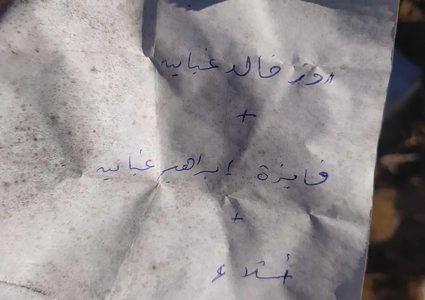 روز خالد غباين
+
فايزة إبراهيم غباين
+
أشلاء